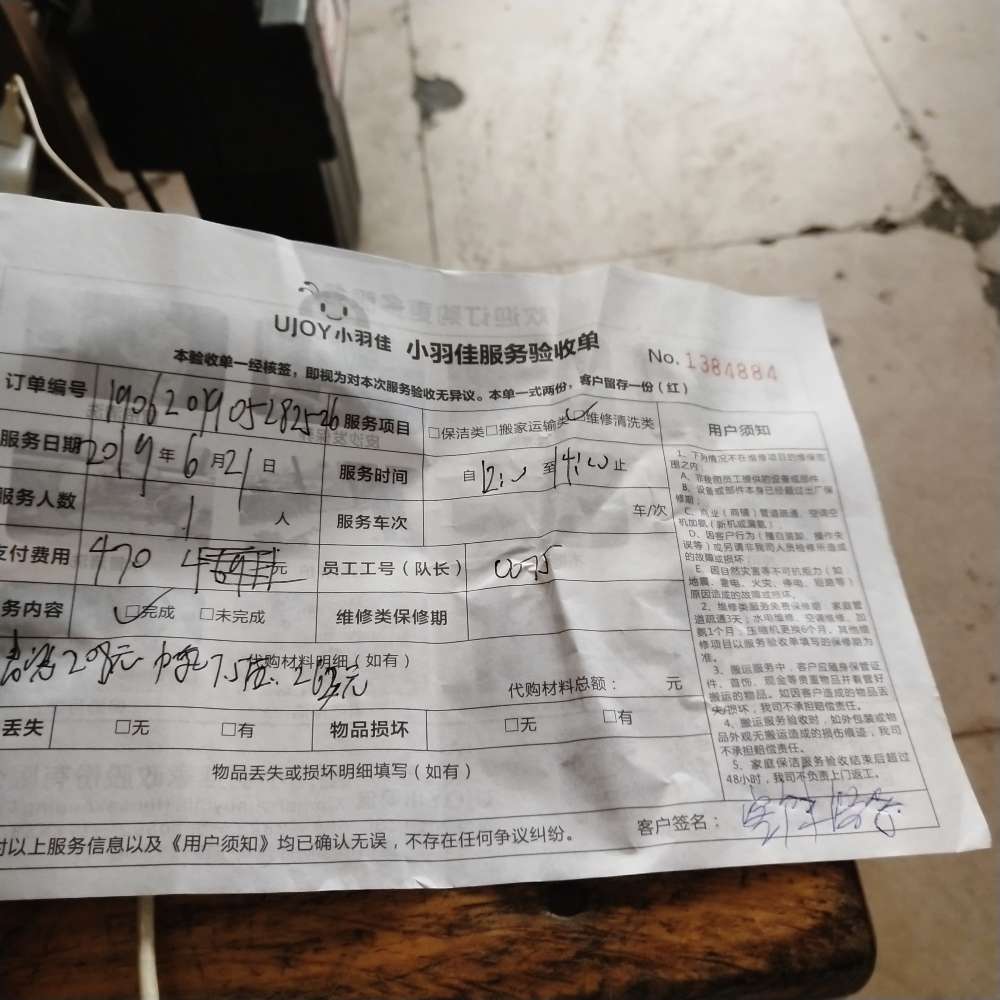 UJOY小羽佳 小羽佳服务验收单
No.1384884
本验收单一经核签，即视为对本次服务验收无异议。本单一式两份，客户留存一份（红）
订单编号 190620190528252626 服务项目 □保洁类□搬家运输类□维修清洗类 用户须知
服务日期 2019年6月21日 服务时间 自12:00至14:00止
服务人数 1人 服务车次 车/次
支付费用 470 元 员工工号（队长） 0075
务内容 □完成 □未完成 维修类保修期
代购材料明细（如有）
代购材料总额： 元
丢失 □无 □有 物品损坏 □无 □有
物品丢失或损坏明细填写（如有）
对以上服务信息以及《用户须知》均已确认无误，不存在任何争议纠纷。 客户签名：
1、下列情况不在维修项目的维保范
围之内：
A、非我司员工提供的设备或部件
B、设备或部件本身已经超过出厂保
修期；
C、商业（商铺）管道疏通、空调空
机加氨（新机或漏氨）
D、因客户行为（擅自装卸、操作失
误等）或另请非我司人员检修所造成
的故障或损坏；
E、因自然灾害等不可抗能力（如
地震、雷电、火灾、停电、短路等）
原因造成的故障或损坏。
2、维修类服务免费保修期：家庭管
道疏通3天；水电维修、空调维修、加
氨1个月；压缩机更换6个月，其他维
修项目以服务验收单填写的保修期为
准。
3、搬运服务中，客户应随身保管证
件、首饰、现金等贵重物品并看管好
搬运的物品。如因客户造成的物品丢
失/损坏，我司不承担赔偿责任。
4、搬运服务验收时，如外包装或物
品外观无搬运造成的损伤痕迹，我司
不承担赔偿责任。
5、家庭保洁服务验收结束后超过
48小时，我司不负责上门返工。